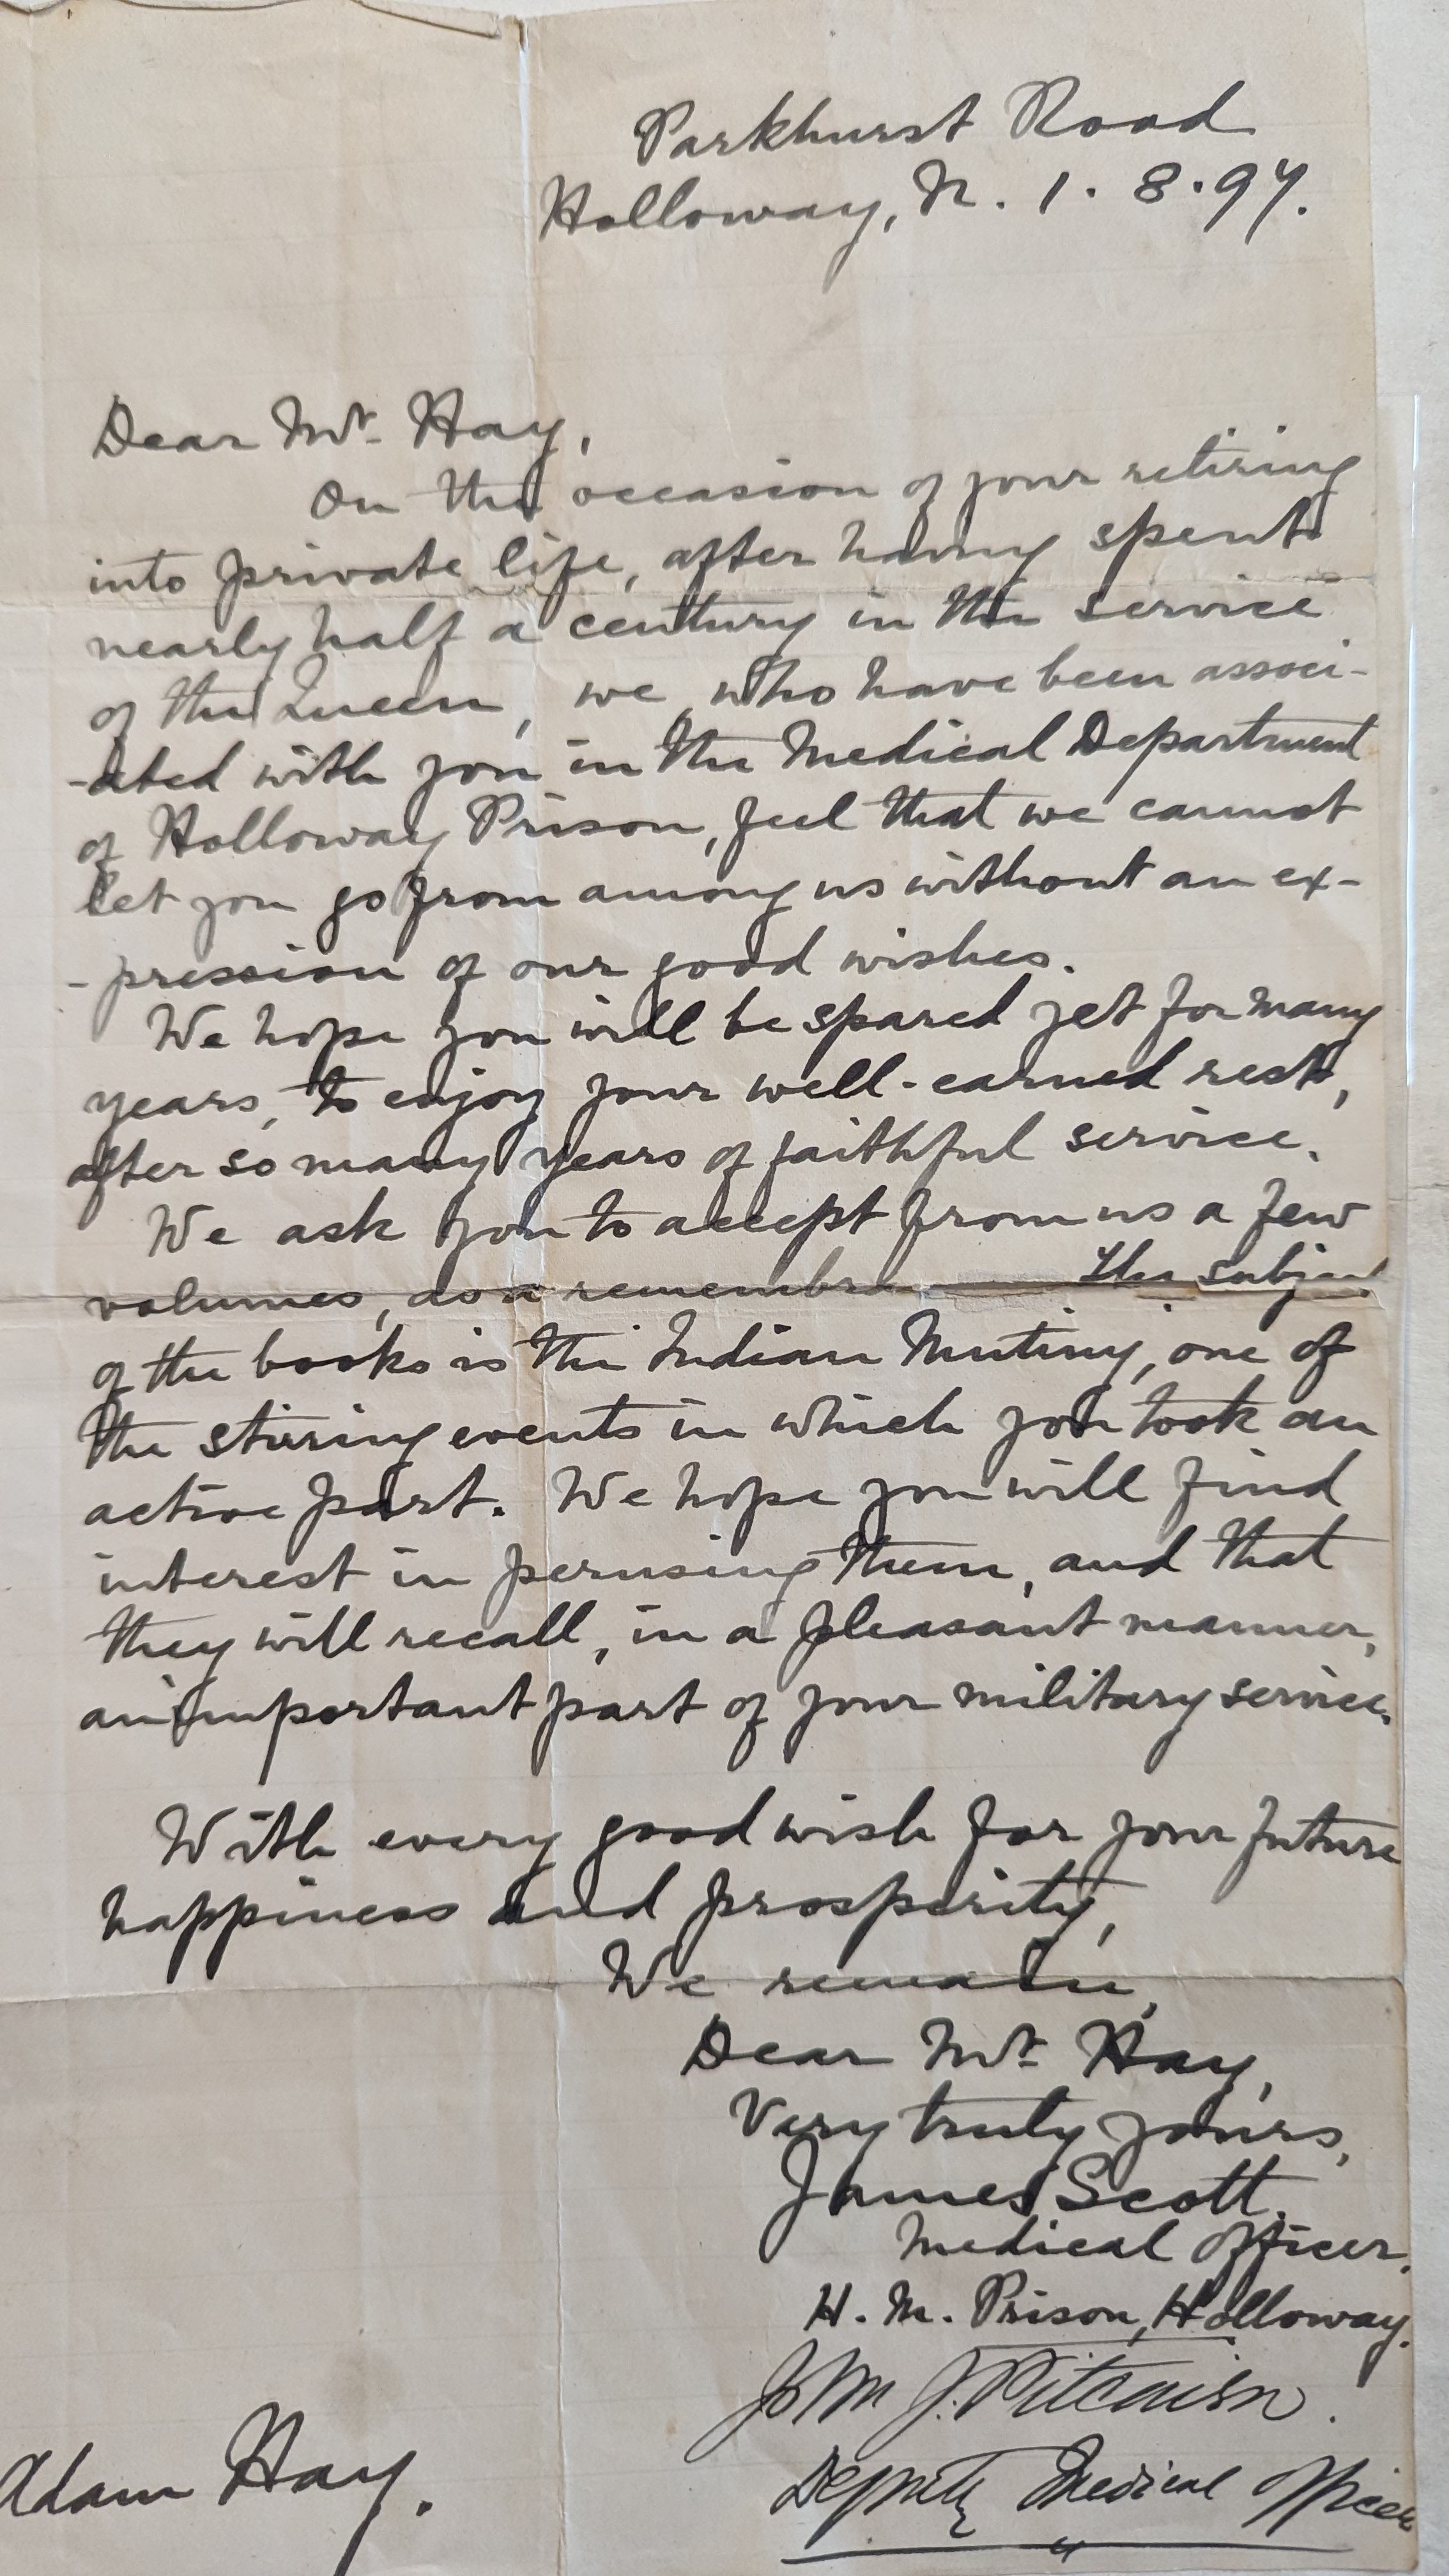 Parkhurst Road
Holloway, N. 1. 8. 97.
Dear Mr. Hay,
On the occasion of your retiring
into private life, after having spent
nearly half a century in the service
of the Queen, we, who have been associ-
-ated with you in the Medical Department
of Holloway Prison, feel that we cannot
let you go from among us without an ex-
-pression of our good wishes.
We hope you will be spared yet for many
years, to enjoy your well-earned rest,
after so many years of faithful service.
We ask you to accept from us a few
volumes, as a remembra The subject
of the books is the Indian Mutiny, one of
the stirring events in which you took an
active part. We hope you will find
interest in perusing them, and that
they will recall, in a pleasant manner,
an important part of your military service.
With every good wish for your future
happiness and prosperity,
We remain,
Dear Mr. Hay,
Very truly yours,
James Scott.
Medical Officer.
H. M. Prison, Holloway.
John J. Pitcairn.
Adam Hay.
Deputy Medical Officer